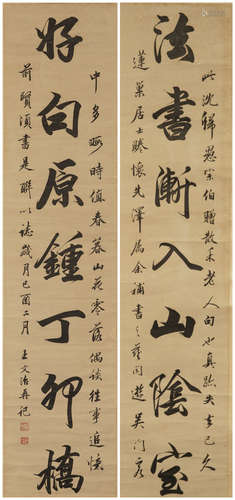 法書漸入山陰室
此沈歸愚宗伯贈散禾老人句也真跡失去已久
蓮巢居士睠懷先澤屬余補書之蓋同遊吳門客
好句原鍾丁卯橋
中多暇時值春暮山花零落偶談往事追憶
前賢須書是聯以誌歲月己酉二月 王文治再記